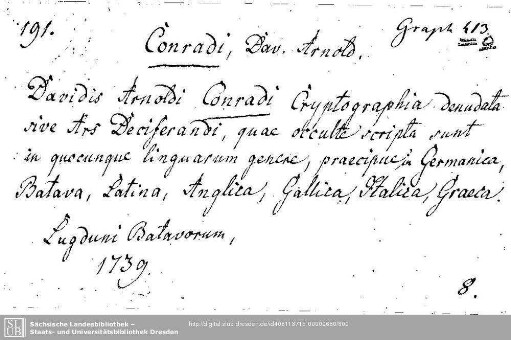 191.
Graph 413
Conradi, Dav. Arnold.
Davidis Arnoldi Conradi Cryptographia denudata
sive Ars Deciferandi, quae occulte scripta sunt
in quocunque linguarum genere, praecipue in Germanica,
Batava, Latina, Anglica, Gallica, Italica, Graeca.
Lugduni Batavorum,
1739.
8.
SLUB
Sächsische Landesbibliothek –
Staats- und Universitätsbibliothek Dresden